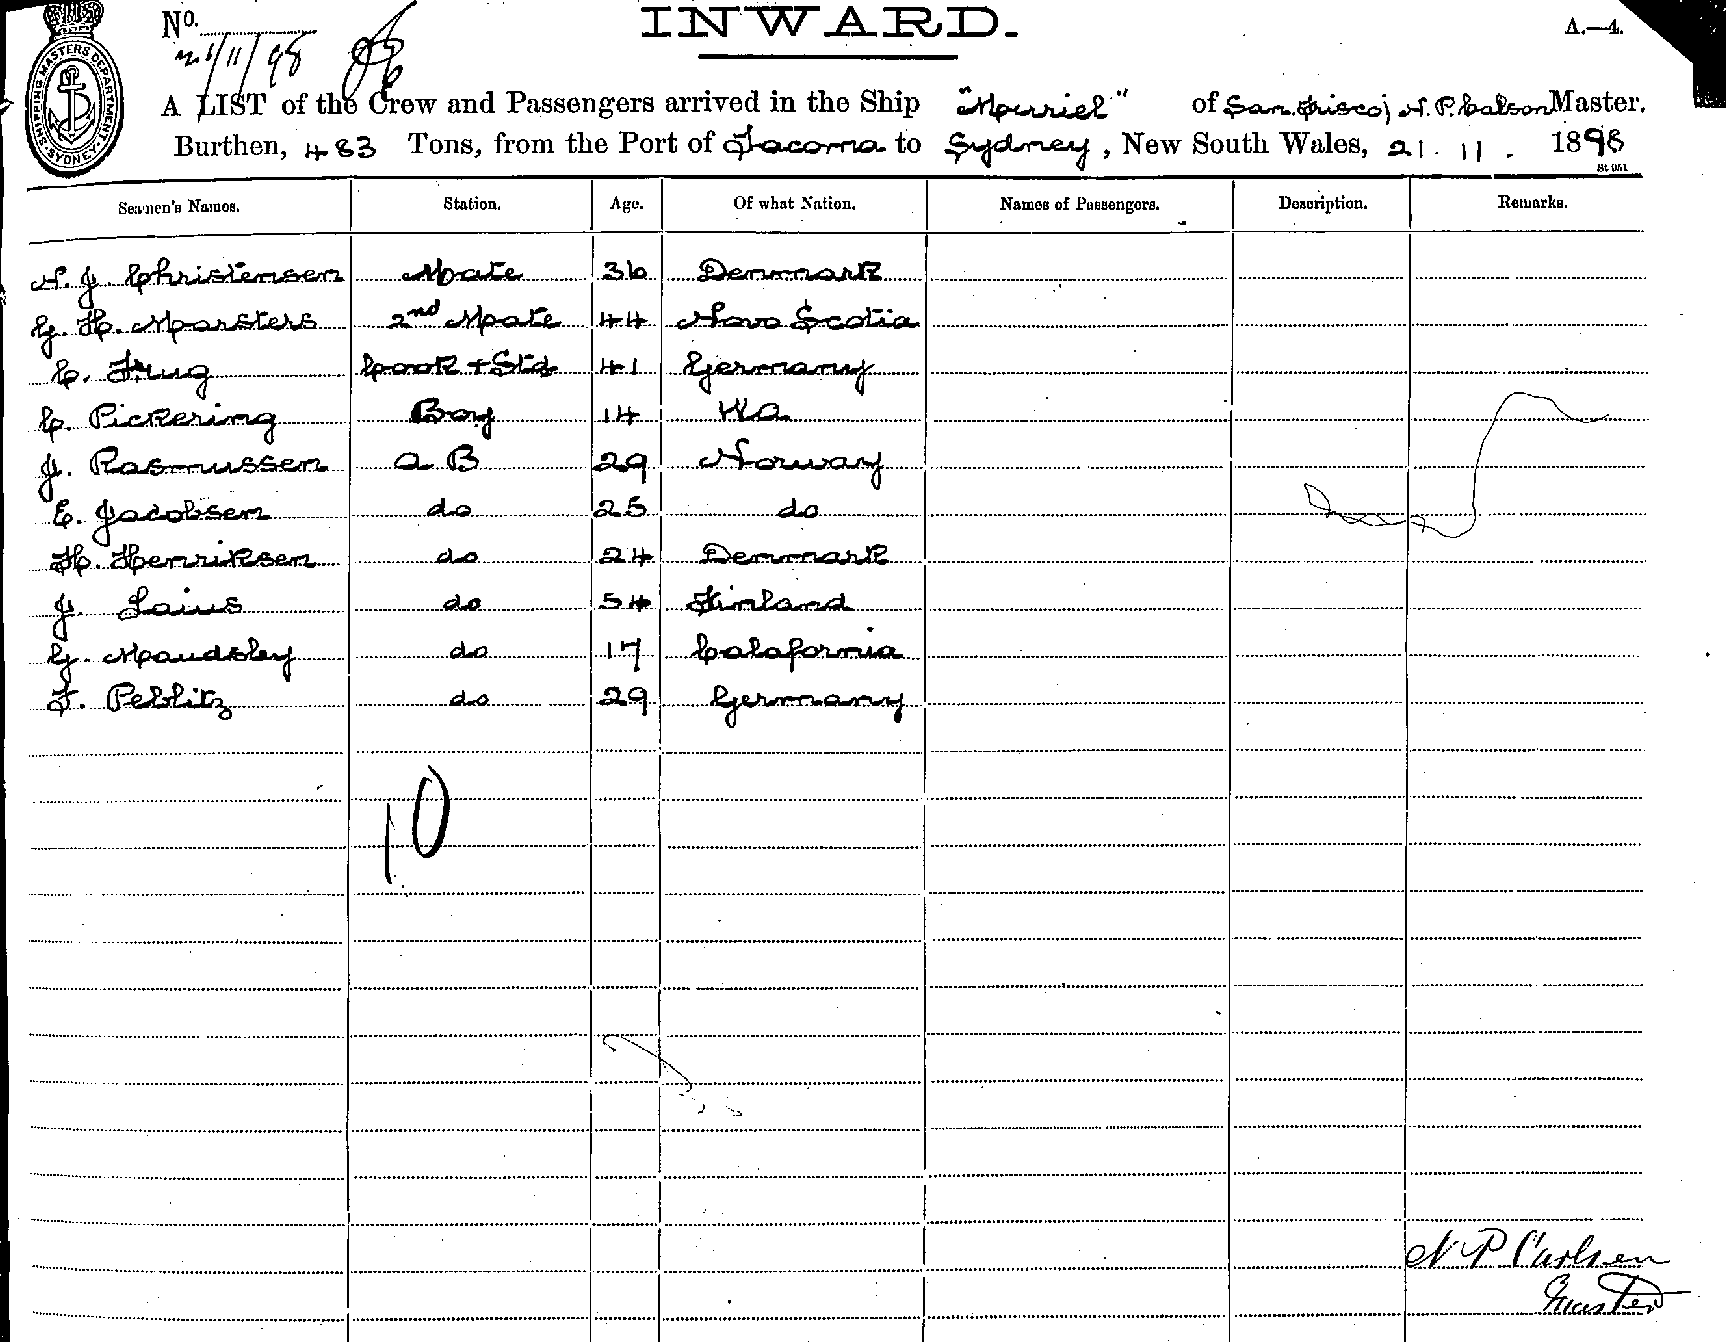 No. INWARD. A.—4.
21/11/98
SHIPPING MASTERS DEPARTMENT SYDNEY
A LIST of the Crew and Passengers arrived in the Ship "Murriel" of San. frisco, N. P. Calson Master.
Burthen, 483 Tons, from the Port of Tacoma to Sydney, New South Wales, 21. 11. 1898
Seamen's Names. Station. Age. Of what Nation. Names of Passengers. Description. Remarks.
N. J. Christensen Mate 36 Denmark
G. H. Marsters 2nd Mate 44 Nova Scotia
C. Cook + Std 41 Germany
C. Pickering Boy 14 WA
J. Rasmussen A B 29 Norway
E. Jacobsen do 25 do
H. Henriksen do 24 Denmark
J. do 54 Finland
G. Maudsley do 17 Calafornia
F. Peblitz do 29 Germany
10
N P Carlsen
Master